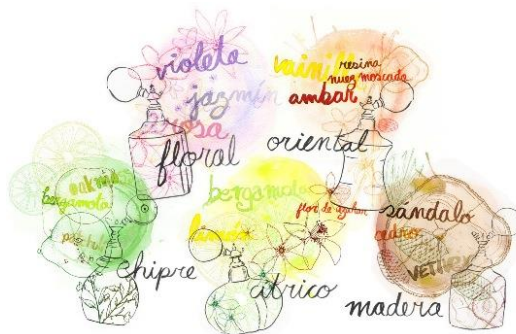 violeta
jazmín
rosa
floral
vainilla
resina
nuez moscada
ambar
oriental
oakmoss
bergamota
pachuli
chipre
bergamota
limón
flor de azahar
cítrico
sándalo
cedro
vetiver
madera